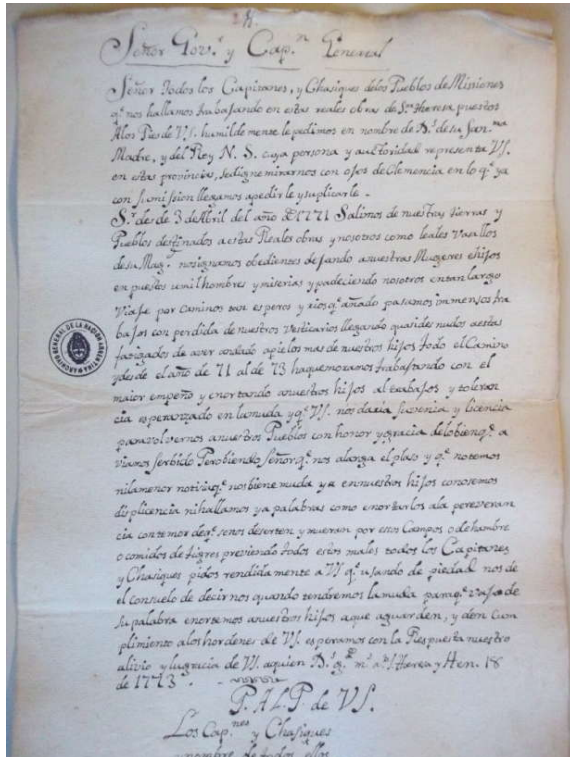 Señor Gov.r y Cap.n General
Señor Todos los Capitanes, y Chasiques delos Pueblos de Missiones
q.e nos hallamos trabajando en estas reales obras de S.ta Theresa puestos
Alos Pies de VS. humilde mente le pedimos en nombre de D.s de su San.ma
Madre, y del Rey N. S. cuya persona y authoridad representa VS.
en estas provincias, sedigne mirarnos con ojos de Clemencia en lo q.e ya
con sumision llegamos apedirle ysuplicarle -
S.r desde 3 de Abril del año de 1771 Salimos de nuestras tierras y
Pueblos destinados aestas Reales obras y nosotros como leales Vasallos
desu Mag.d nosignamos obedientes dejando anuestras Mugeres ehijos
en puestos amil hombres y miserias y padeciendo nosotros entan largo
Viaje por Caminos tan esperos y rios q.e añado pasamos immensos tra
bajos con perdida de nuestros Vesticarios llegando quasi desnudos aestas
fatigados de aver andado apie los mas de nuestros hijos todo el Camino
ydesde el año de 71 al de 73 haquemoramos trabajando con el
maior empeño y enortando anuestros hijos al trabajos y toleran
cia esperanzado en lamuda yq.e VS. nos daria sicencia y licencia
paravolvernos anuestros Pueblos con honor ygracia delobien q.e a
viamos serbido Perobiendo Señor q.e nos alarga el plaso y q.e notemos
nilamenor notiviaq.e nosbiene muda ya ennuestros hijos conosemos
displicencia nihallamos ya palabras como enortarlos ala pereveran
cia contemor deq.e senos deserten y mueran por estos Campos o dehambre
o comidos detigres previendo todos estos males todos los Capitanes
y Chasiques pidos rendidamente a VS q.e usando de piedad nos de
el consuelo de decirnos quando tendremos lamuda paraq.e vajo de
su palabra enortemos anuestros hijos aque aguarden, y den Cum
plimiento alos hordenes de VS. esperamos con la Respuesta nuestro
alivio y lagracia de VS. aquien D.s g.e m.s a.s S. Theresa y Hen. 18
de 1773.
P. A L P. de VS.
Los Cap.nes y Chasiques
anombre de todos ellos
ARCHIVO GENERAL DE LA NACION ARGENTINA